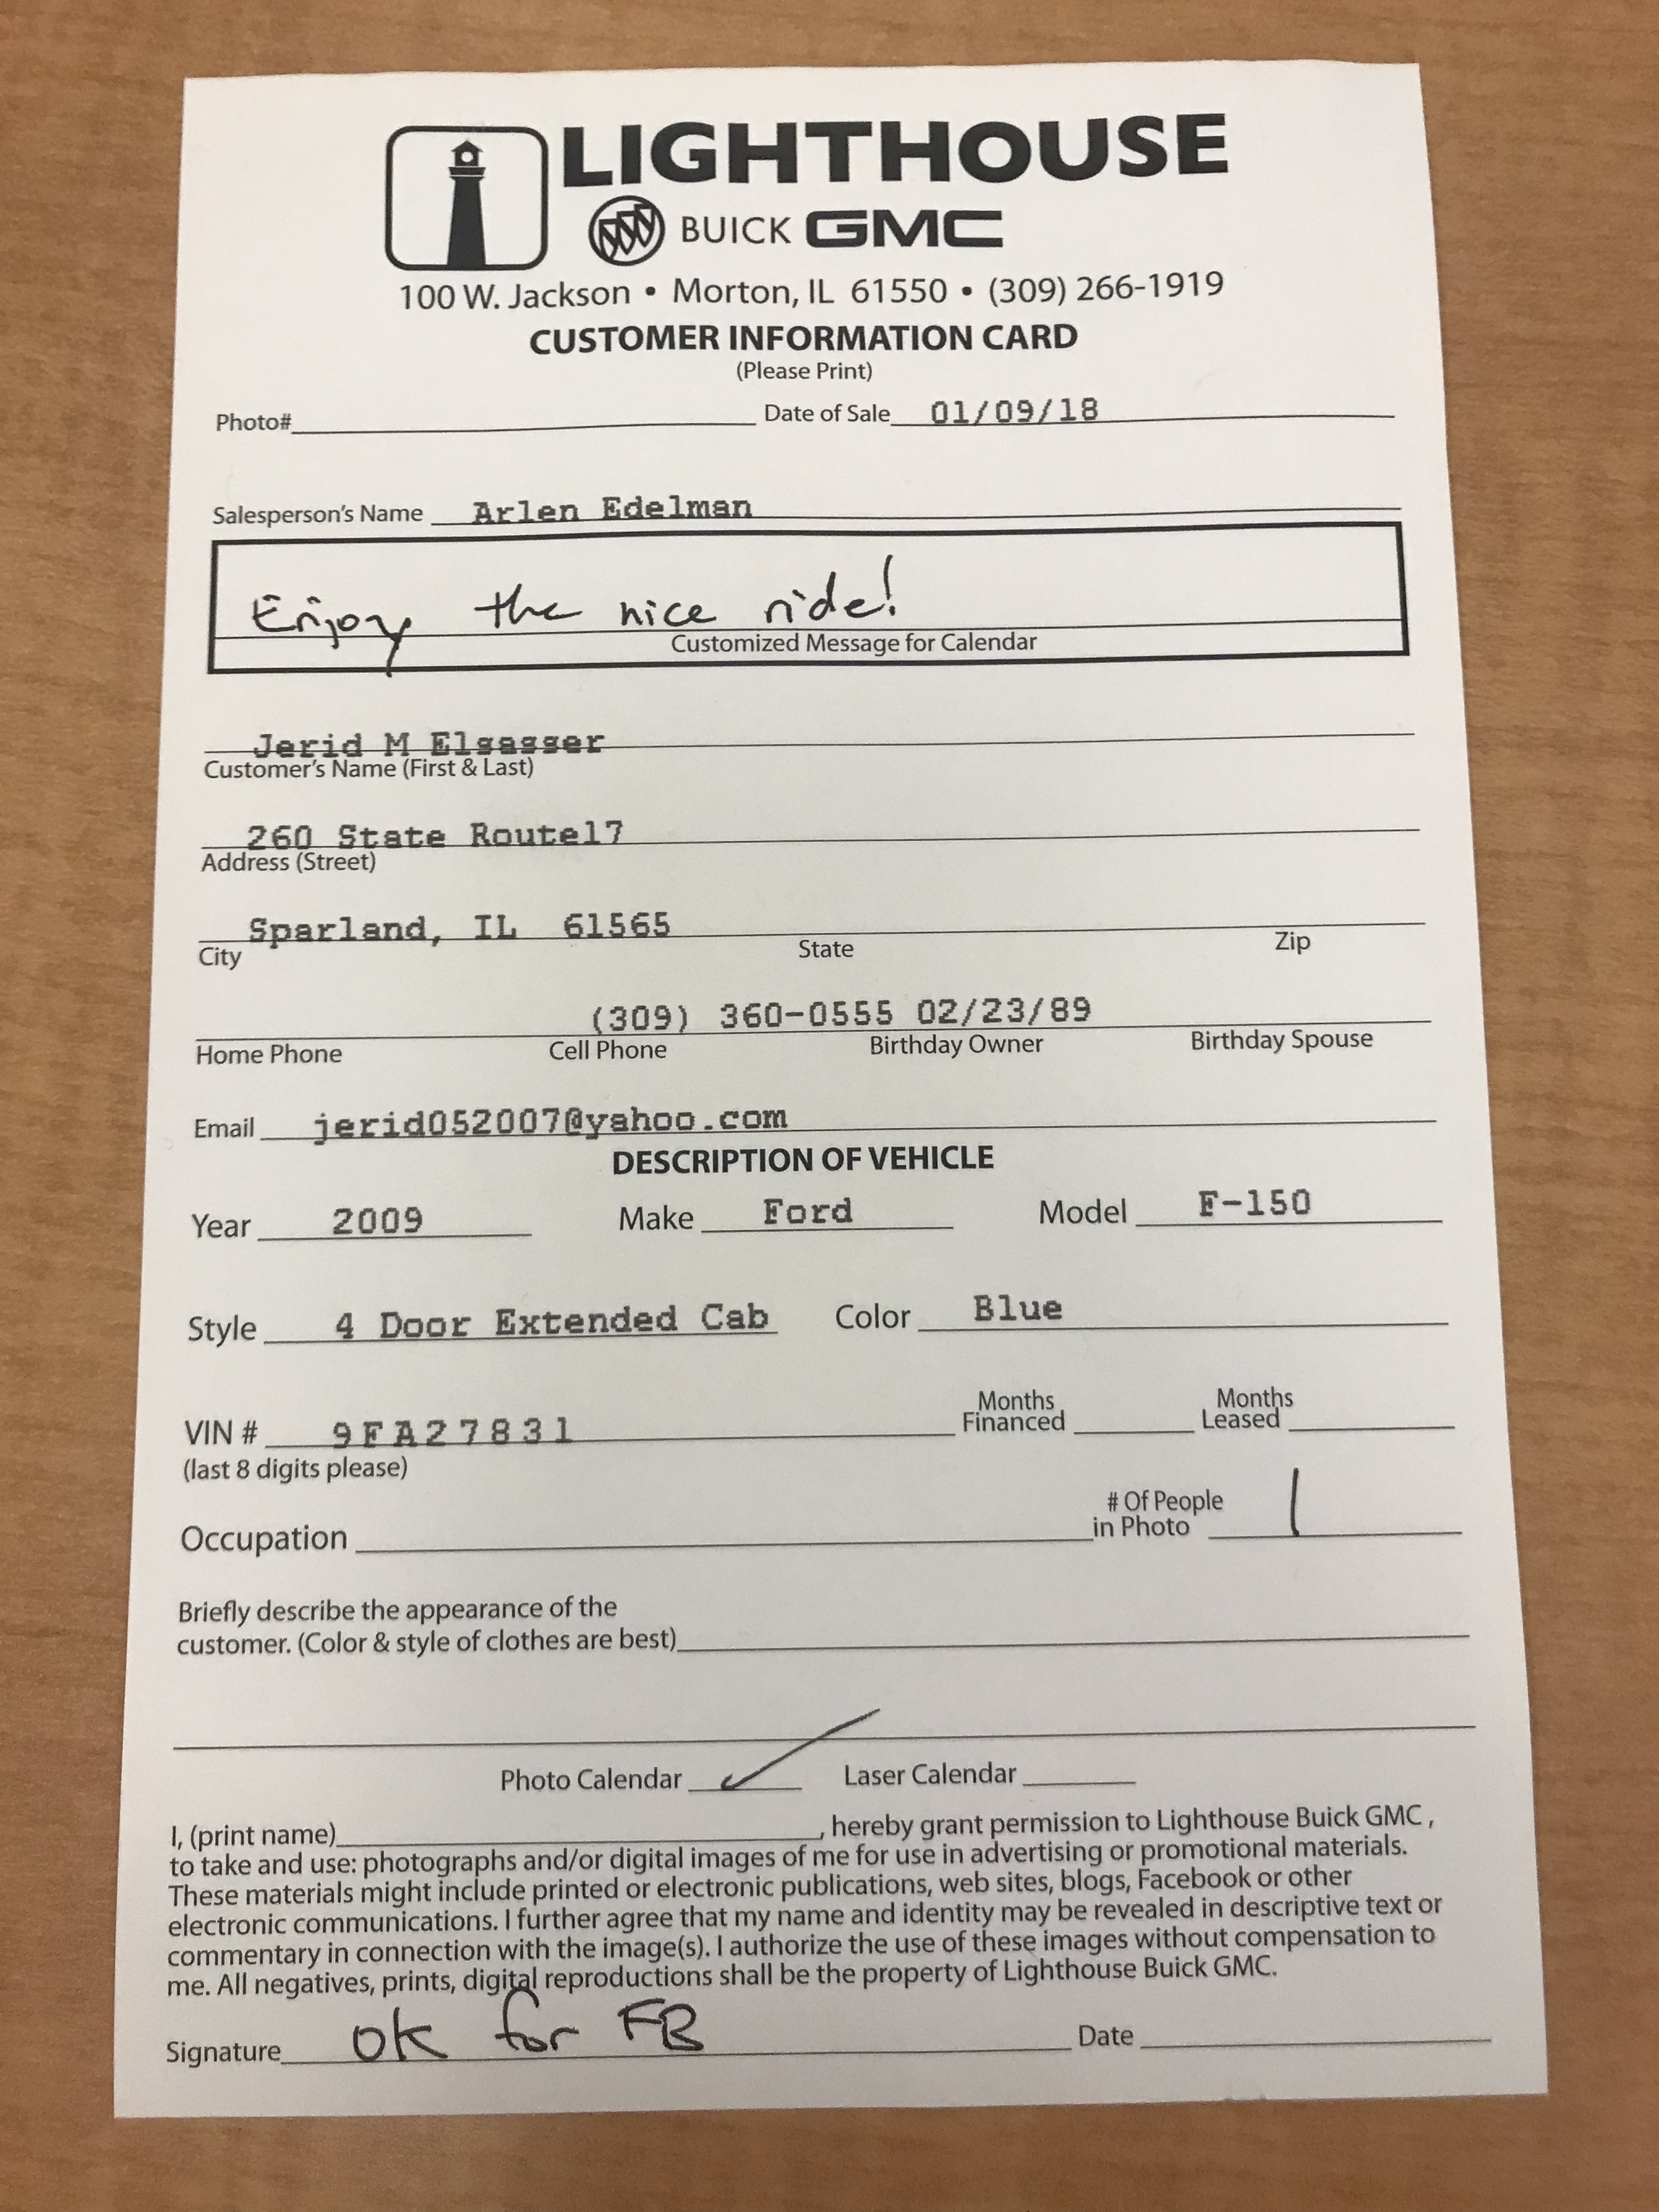 LIGHTHOUSE
BUICK GMC
100 W. Jackson • Morton, IL 61550 • (309) 266-1919
CUSTOMER INFORMATION CARD
(Please Print)
Photo# Date of Sale 01/09/18
Salesperson's Name Arlen Edelman
Enjoy the nice ride!
Customized Message for Calendar
Jerid M Elsasser
Customer's Name (First & Last)
260 State Route17
Address (Street)
Sparland, IL 61565
City State Zip
(309) 360-0555 02/23/89
Home Phone Cell Phone Birthday Owner Birthday Spouse
Email jerid052007@yahoo.com
DESCRIPTION OF VEHICLE
Year 2009 Make Ford Model F-150
Style 4 Door Extended Cab Color Blue
Months Months
VIN # 9FA27831 Financed Leased
(last 8 digits please)
# Of People
Occupation in Photo 1
Briefly describe the appearance of the
customer. (Color & style of clothes are best)
Photo Calendar ✓ Laser Calendar
I, (print name) , hereby grant permission to Lighthouse Buick GMC ,
to take and use: photographs and/or digital images of me for use in advertising or promotional materials.
These materials might include printed or electronic publications, web sites, blogs, Facebook or other
electronic communications. I further agree that my name and identity may be revealed in descriptive text or
commentary in connection with the image(s). I authorize the use of these images without compensation to
me. All negatives, prints, digital reproductions shall be the property of Lighthouse Buick GMC.
Signature OK for FB Date